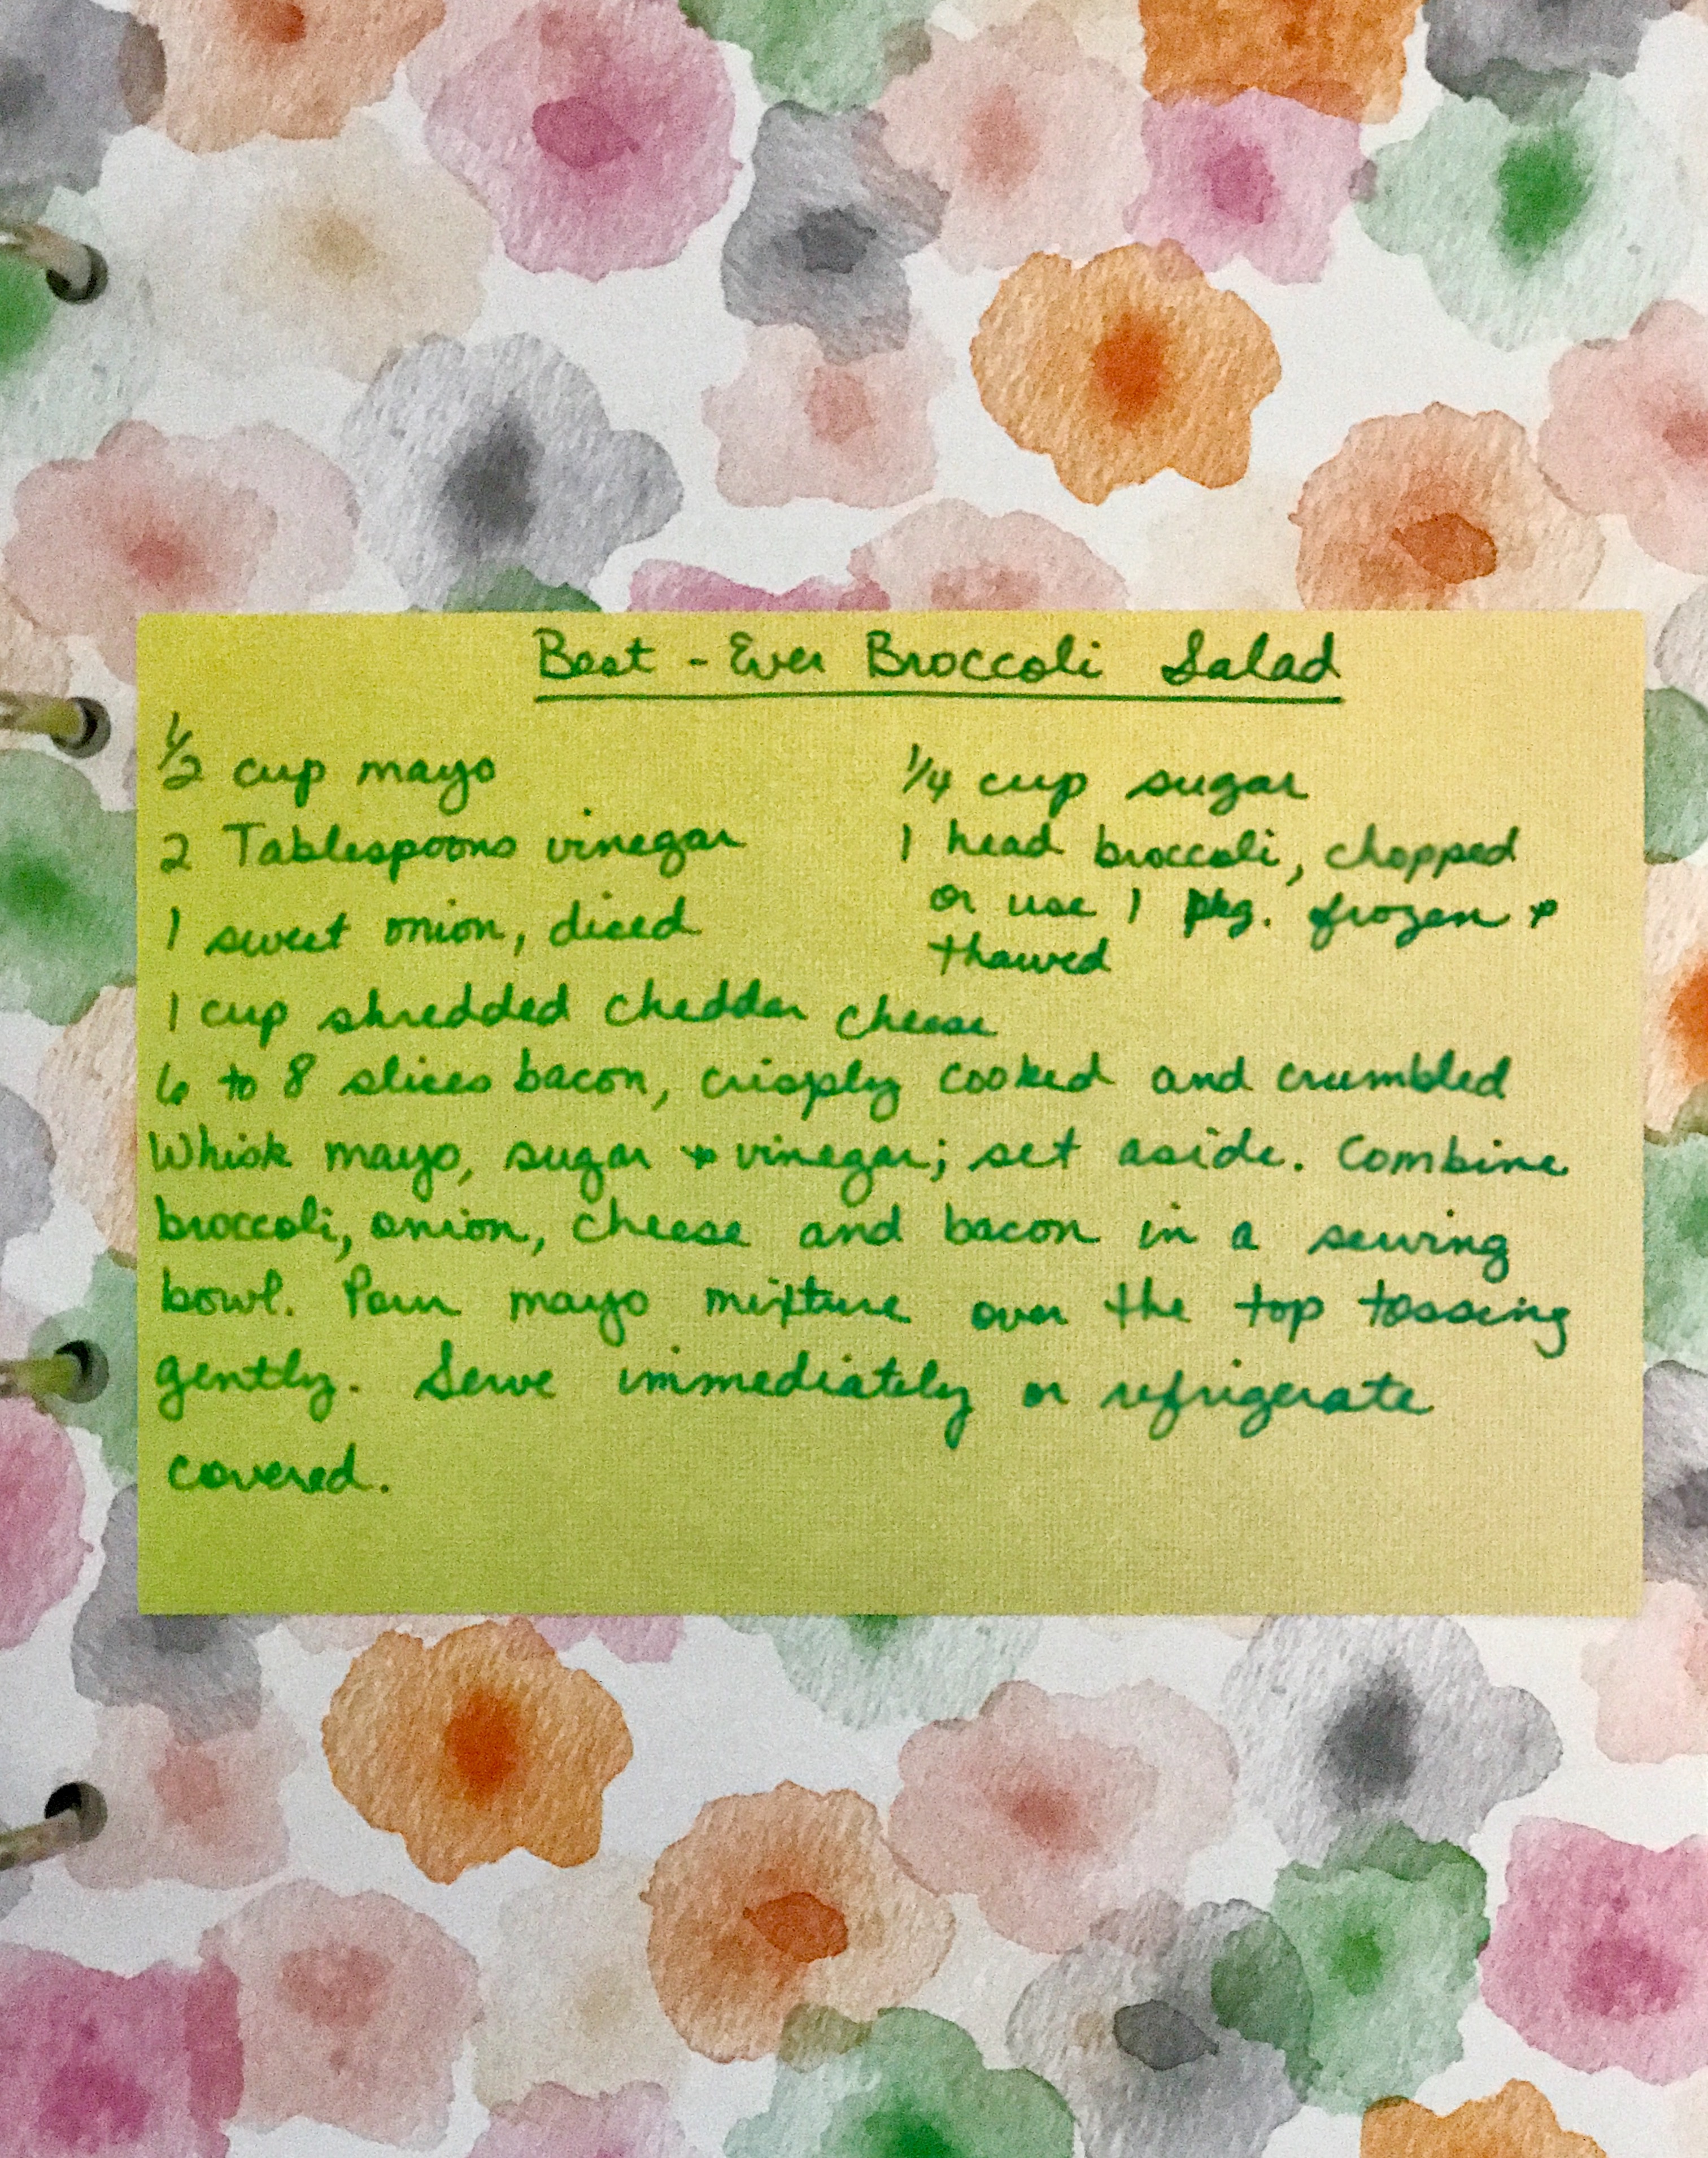 Best - Ever Broccoli Salad
1/2 cup mayo
2 Tablespoons vinegar
1 sweet onion, diced
1/4 cup sugar
1 head broccoli, chopped
or use 1 pkg. frozen +
thawed
1 cup shredded cheddar cheese
6 to 8 slices bacon, crisply cooked and crumbled
Whisk mayo, sugar + vinegar; set aside. Combine
broccoli, onion, cheese and bacon in a serving
bowl. Pour mayo mixture over the top tossing
gently. Serve immediately or refrigerate
covered.